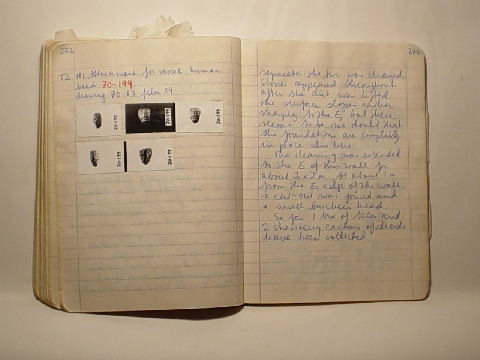 272
T2 M1 Attachment for vessel, human
head 70-199
drawing 70:63 film 54
273
separate the two was cleaned
Stones appeared throughout
after the dirt was lifted.
The surface slopes rather
sharply to the E, but there
seems to be no doubt that
the foundations are completely
in place also here.
The clearing was extended
to the E of this wall for
about 2x2m. At about 1m
from the E edge of the wall
a cut-out was found and
a small head.
So far 1 box of tiles and
2 strawberry cartons of sherds
have been collected.